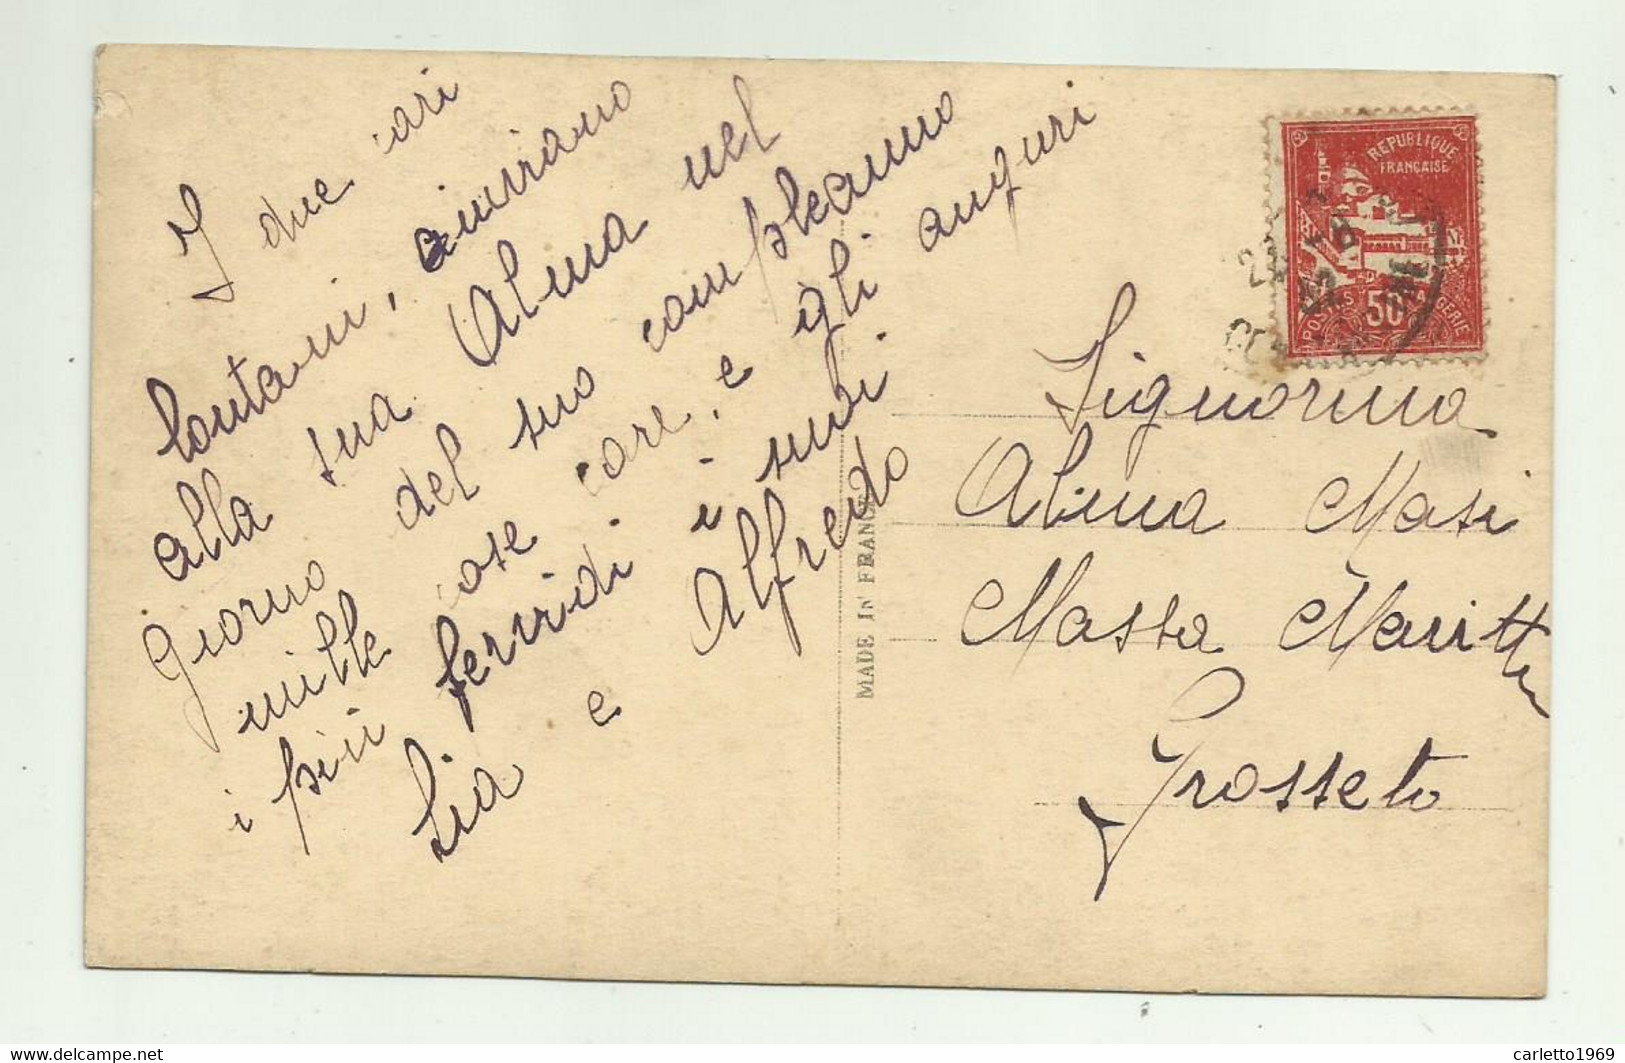 I due cari
lontani, inviano
alla sua Alma nel
giorno del suo compleanno
mille cose care, e gli auguri
i più fervidi i suoi
Lia e Alfredo
MADE IN FRANCE
REPUBLIQUE
FRANÇAISE
50
POSTES ALGERIE
Signorina
Alma Masi
Massa Maritt
Grosseto
www.delcampe.net
carletto1969